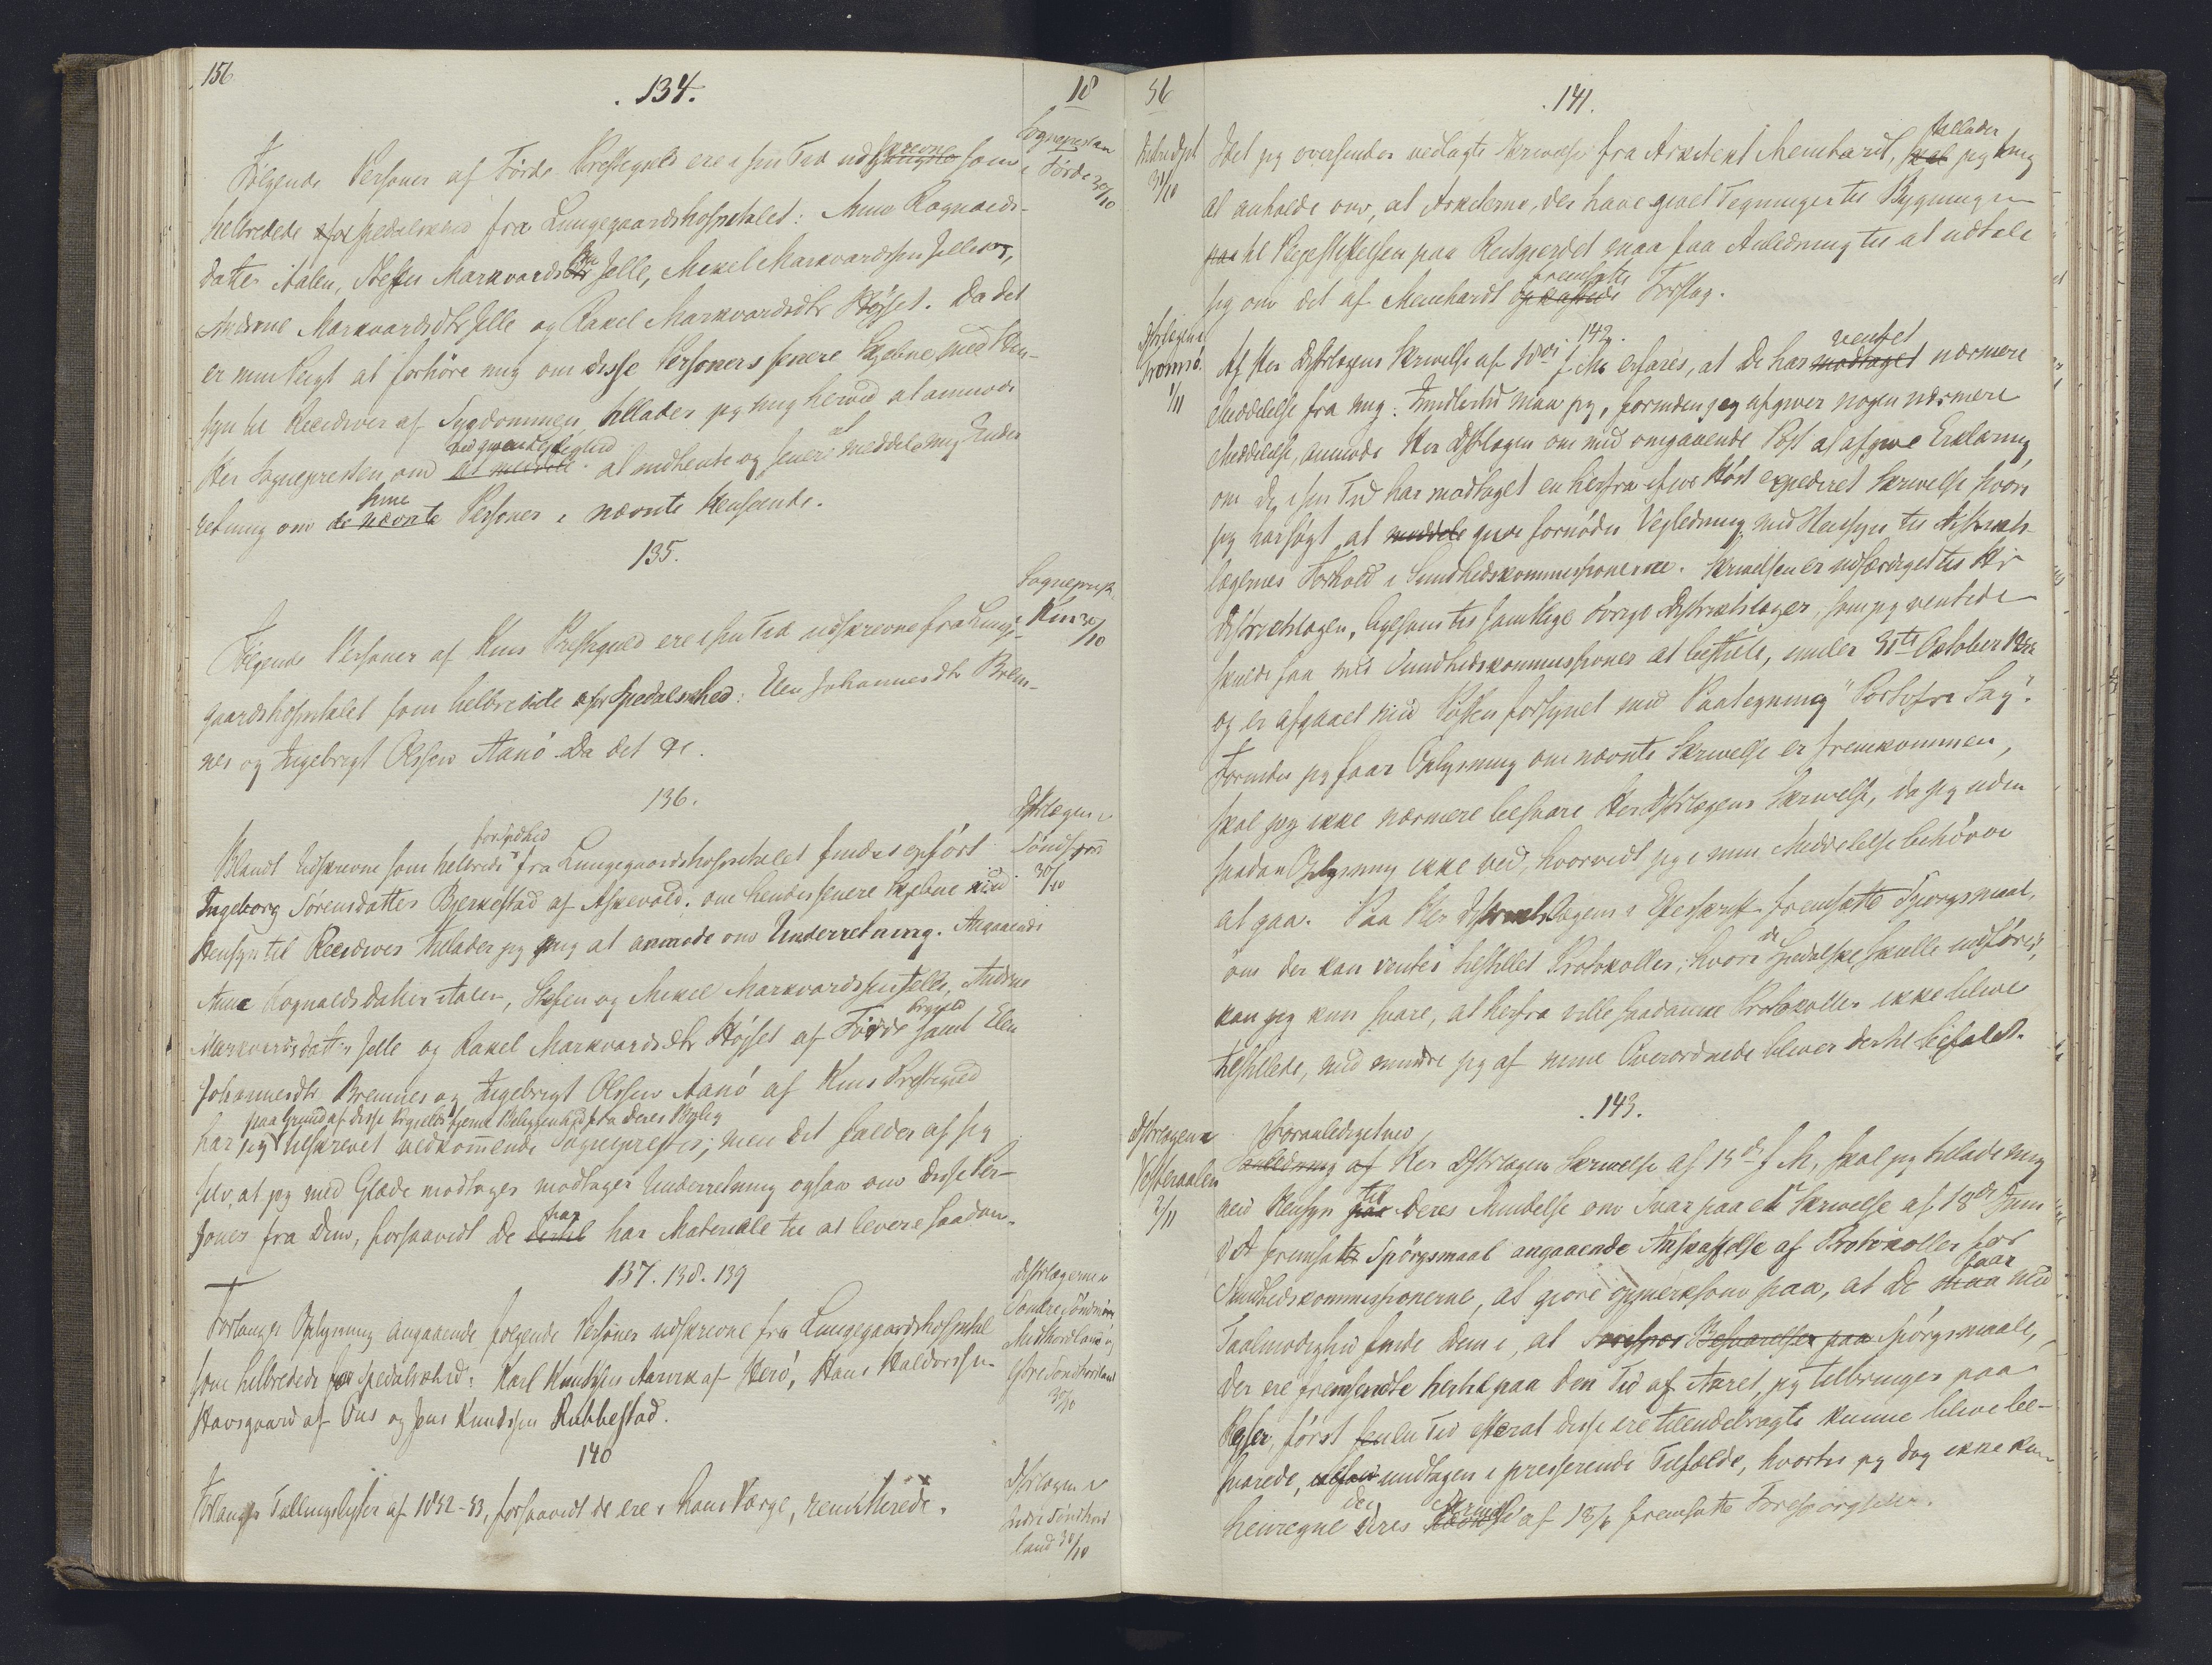 156
134.
18
Sognepresten
i Förde 30/10
Følgende Personer af Förde Prestegjeld ere i sin Tid udskrevne som
helbredede for Spedalskhed fra Lungegaardshospitalet: Anna Ragnalds-
datter Aalen, Steffen Markvardssen Jelle, Mikel Markvardssen Jelle,
Andrine Markvardsdtr Jelle og Rakel Markvardsdtr Høiset. Da det
er min Pligt at forhöre mig om disse Personers senere Skjebne med Hen-
syn til Recidiver af Sygdommen, tillader jeg mig herved at anmode
Her Sognepresten om ved given Leilighed at meddele at indhente og senere at meddele mig Under-
retning om hine de nævnte Personer i nævnte Henseende.
135.
Sogneprest.
Kin 30/10
Følgende Personer af Kins Prestegjeld ere i sin Tid udskrevne fra Lunge-
gaardshospitalet som helbredede for Spedalskhed: Elen Johannesdtr Brem-
nes og Ingebrigt Olssen Aanö. Da det &c.
136.
Dstrlægen i
Söndfjord
30/10
Blandt Udskrevne som helbrede for Spdhed fra Lungegaardshospitalet findes opført
Ingeborg Sörensdatter Bjerkestad af Askevold; om hendes senere Skjebne med
Hensyn til Recidiver tillader jeg mig at anmode om Underretning. Angaaende
Anna Ragnaldsdatter Aalen, Steffen og Mikel Markvardssen Jelle, Andrine
Markvardsdatter Jelle og Rakel Markvardsdtr Höiset af Förde Prgjeld samt Elen
Johannesdtr Bremnes og Ingebrigt Olssen Aanö af Kins Prestegjeld
paa Grund af disse Prgjelds fjerne Beliggenhed fra Deres Bolig
har jeg tilskrevet vedkommende Sogneprester; men det falder af sig
selv, at jeg med Glæde modtager modtager Underretning ogsaa om disse Per-
soner fra Dem, forsaavidt De dertil har Materiale til at levere saadan.
137. 138. 139
Dstrlægerne i
Söndre Söndmör,
Midthordland og
Ytre Söndhordland
30/10
Forlanges Oplysning angaaende følgende Personer udskrevne fra Lungegaardshospital
som helbredede for Spedalskhed: Karl Knudssen Aarvik af Herö, Hans Haldorssen
Havsgaard af Fus og Jens Knudssen Rubbestad.
140
Dstrlægen i
Indre Söndhord
land 30/10
Forlanges Tællingslister af 1852-53, forsaavidt de ere i hans Værge, remitterede.
56
141.
Indredpt
31/10
Idet jeg oversender vedlagte Skrivelse fra Arkitekt Meinhardt, tillader skal jeg mig
at anholde om, at Arkiterne, der have givet Tegninger til Bygningen
paa til Plejestiftelsen paa Reitgjerdet maa faa Anledning til at udtale
sig om det af Meinhardt fremsatte Forslag.
142.
Dstrlægen i
Tromsö.
1/11
Af Her Dstrlægens Skrivelse af 10de f. M. erfares, at De har ventet modtaget nærmere
Meddelelse fra mig. Imidlertid maa jeg, forinden jeg afgiver nogen nærmere
Meddelelse, anmode Her Dstrlægen om med omgaaende Post at afgive Erklæring,
om De i sin Tid har modtaget en herfra ifjor Høst expederet Skrivelse hvori
jeg har søgt at meddele give fornöden Veiledning med Hensyn til Distrikts-
lægernes Forhold i Sundhedskommissionerne. Skrivelsen er udfærdiget til Hr
Distriktslægen, ligesom til samtlige övrige Distriktslæger, som jeg ventede
skulde faa med Sundhedskommissioner at bestille, under 31te October 1855
og er afgaaet med Posten forsynet med Paategning "Portofri Sag".
Forinden jeg faar Oplysning om nævnte Skrivelse er fremkommen,
skal jeg ikke nærmere besvare Her Dstrlægens Skrivelse, da jeg uden
saadan Oplysning ikke ved, hvorvidt jeg i min Meddelelse behöver
at gaa. Paa Her Distriktslægens i Efterskrift fremsatte Spörgsmaal,
om der kan ventes tilstillet Protokoller, hvori de Spedalske skulle indføres,
kan jeg kun svare, at herfra ville saadanne Protokoller ikke blive
tilstillede, med mindre jeg af mine Overordnede bliver dertil befalet.
143.
Dstrlægen i
Vesteraalen
2/11
Foranlediget ved
Anledning af Her Dstrlægens Skrivelse af 15de f. M., skal jeg tillade mig
med Hensyn til paa Deres Mindelse om Svar paa et i Skrivelse af 18de Juni
d. A. fremsatte Spörgsmaal angaaende Anskaffelse af Protokoller for
Sundhedskommissionerne, at gjøre opmerksom paa, at De faar maa med
Taalmodighed finde Dem i, at Besvarelser paa Spörgsmaale,
der ere fremsendte hertil paa den Tid af Aaret, jeg tilbringer paa
Reiser, först en Tid efterat disse ere tilendebragte kunne blive be-
svarede, undtagen i presserende Tilfælde, hvortil jeg dog ikke kan
henregne den Deres Skrivelse af 18/6 fremsatte Forespörgsel.